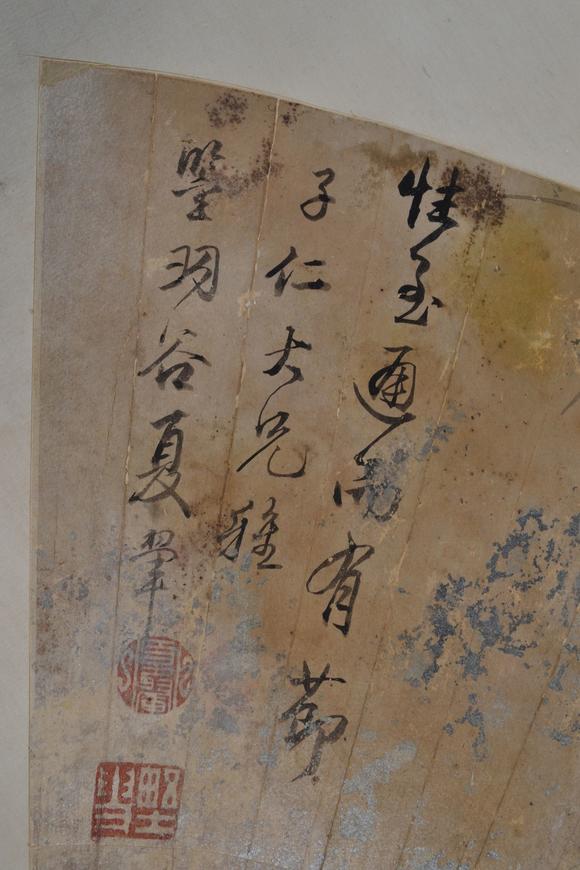 性至通而有節
子仁大兄雅
鑒羽谷夏翬